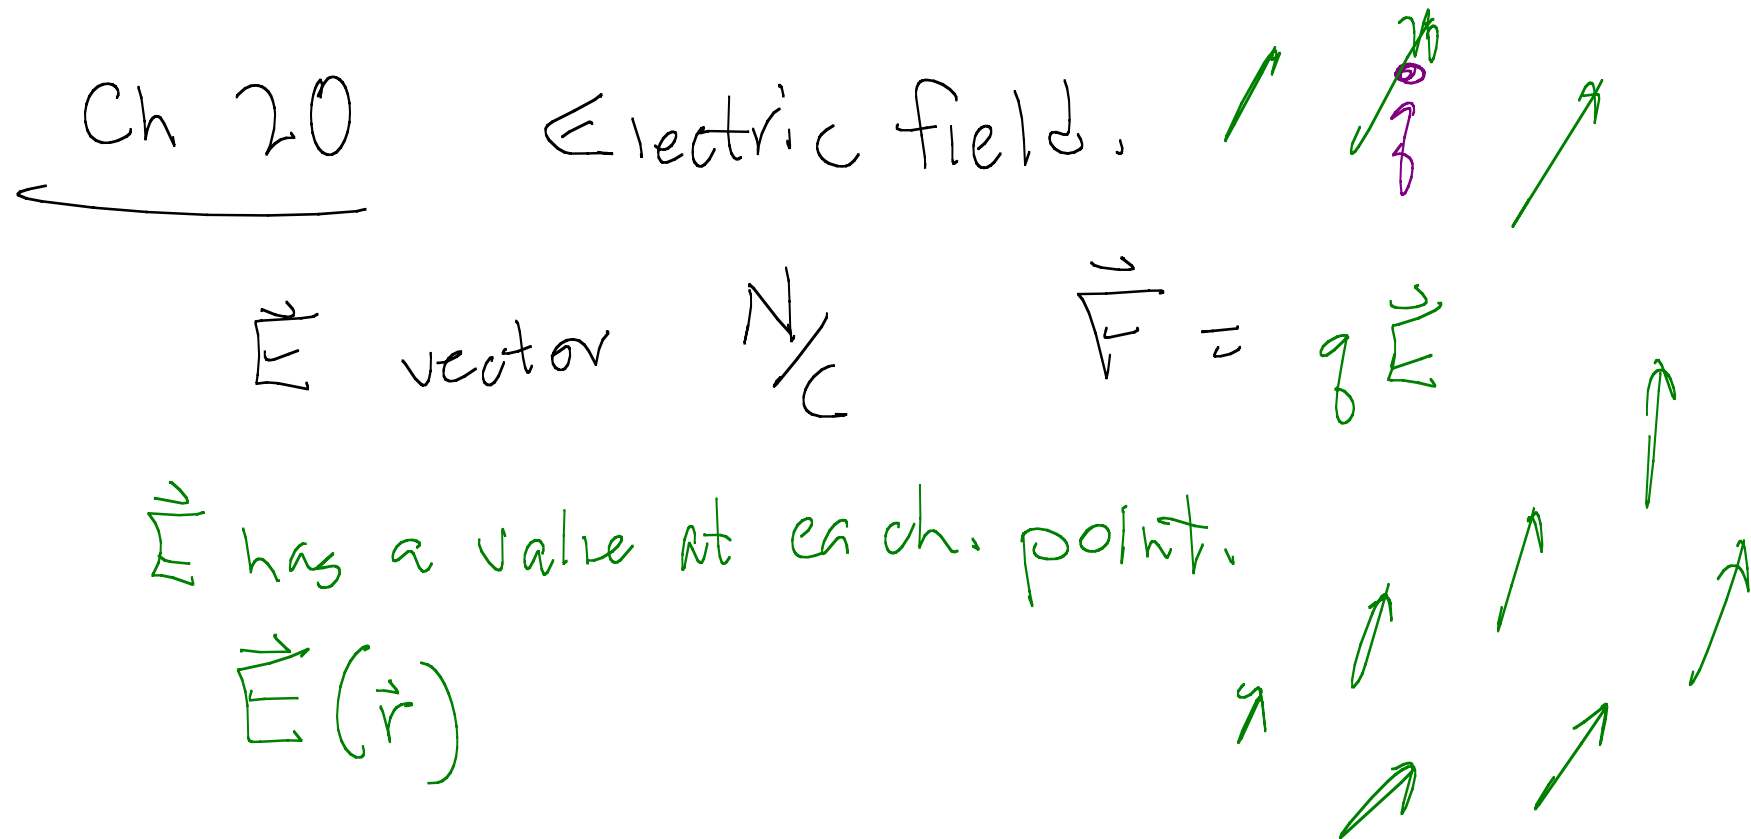 Ch 20 Electric field.
q
E⃗ vector N/C F⃗ = q E⃗
E⃗ has a value at each. point.
E⃗(r⃗)